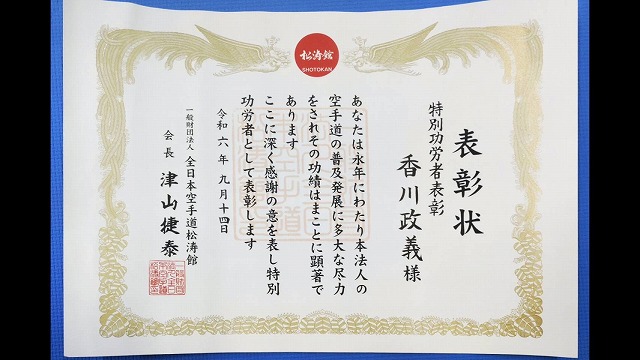 松涛館
SHOTOKAN
表彰状
特別功労者表彰
香川政義様
あなたは永年にわたり本法人の
空手道の普及発展に多大な尽力
をされその功績はまことに顕著で
あります
ここに深く感謝の意を表し特別
功労者として表彰します
令和六年九月十四日
一般財団法人 全日本空手道松涛館
会長 津山捷泰